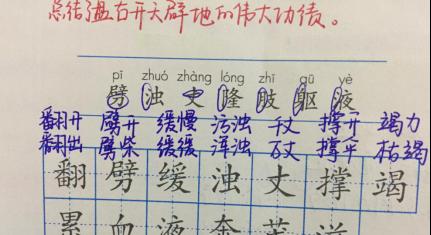 总结了盘古开天辟地的伟大功绩。
pī zhuó zhàng lóng zhī qū yè
劈 浊 丈 隆 肢 躯 液
翻开 劈开 缓慢 污浊 千丈 撑开 竭力
翻出 劈柴 缓缓 浑浊 万丈 撑平 枯竭
翻 劈 缓 浊 丈 撑 竭
累 血 液 奔 茂 滋